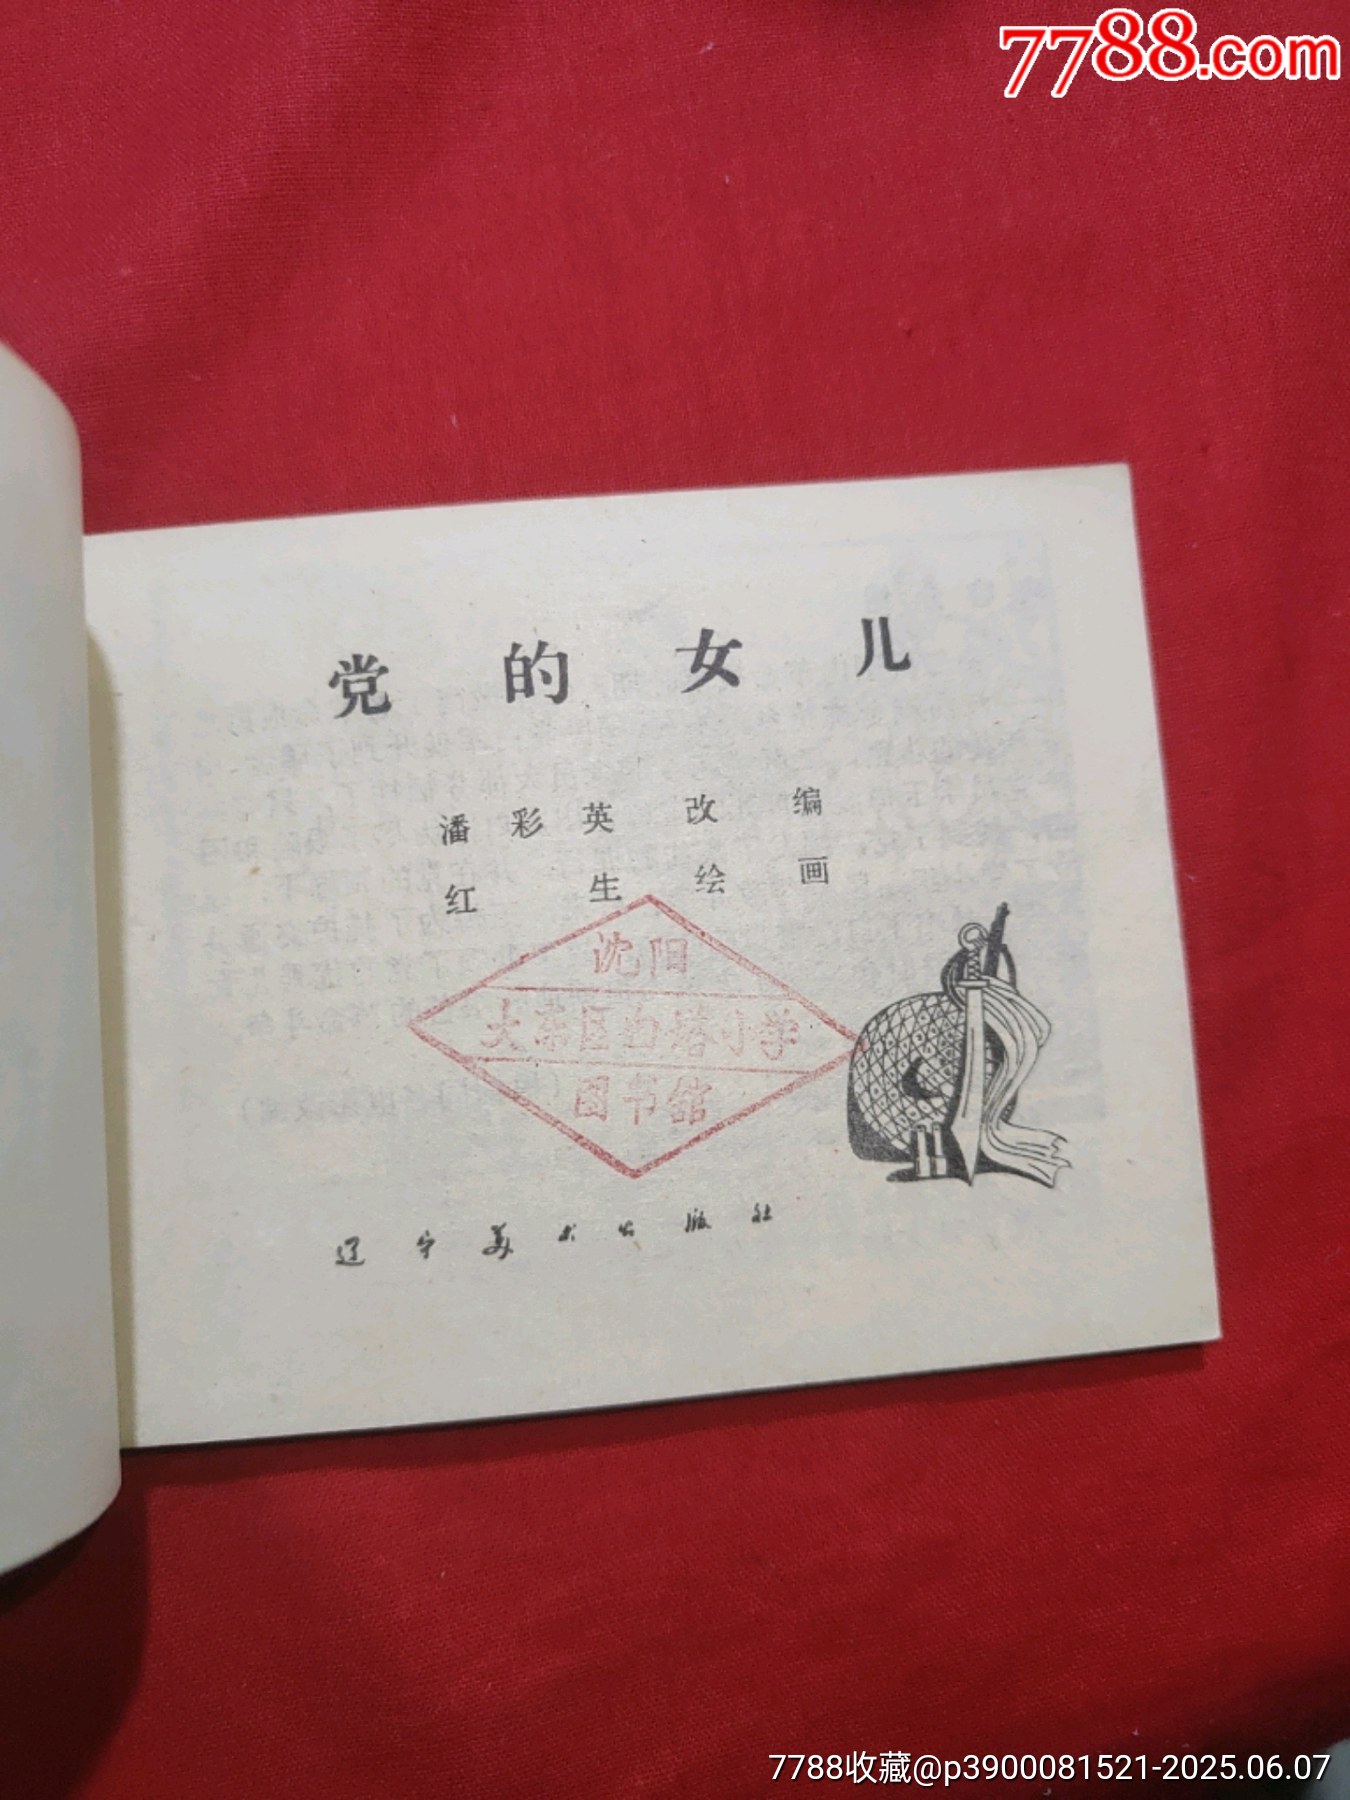 7788.com
党的女儿
潘彩英改编
红生绘画
沈阳
大东区白塔小学
图书馆
辽宁美术出版社
7788收藏@p3900081521-2025.06.07